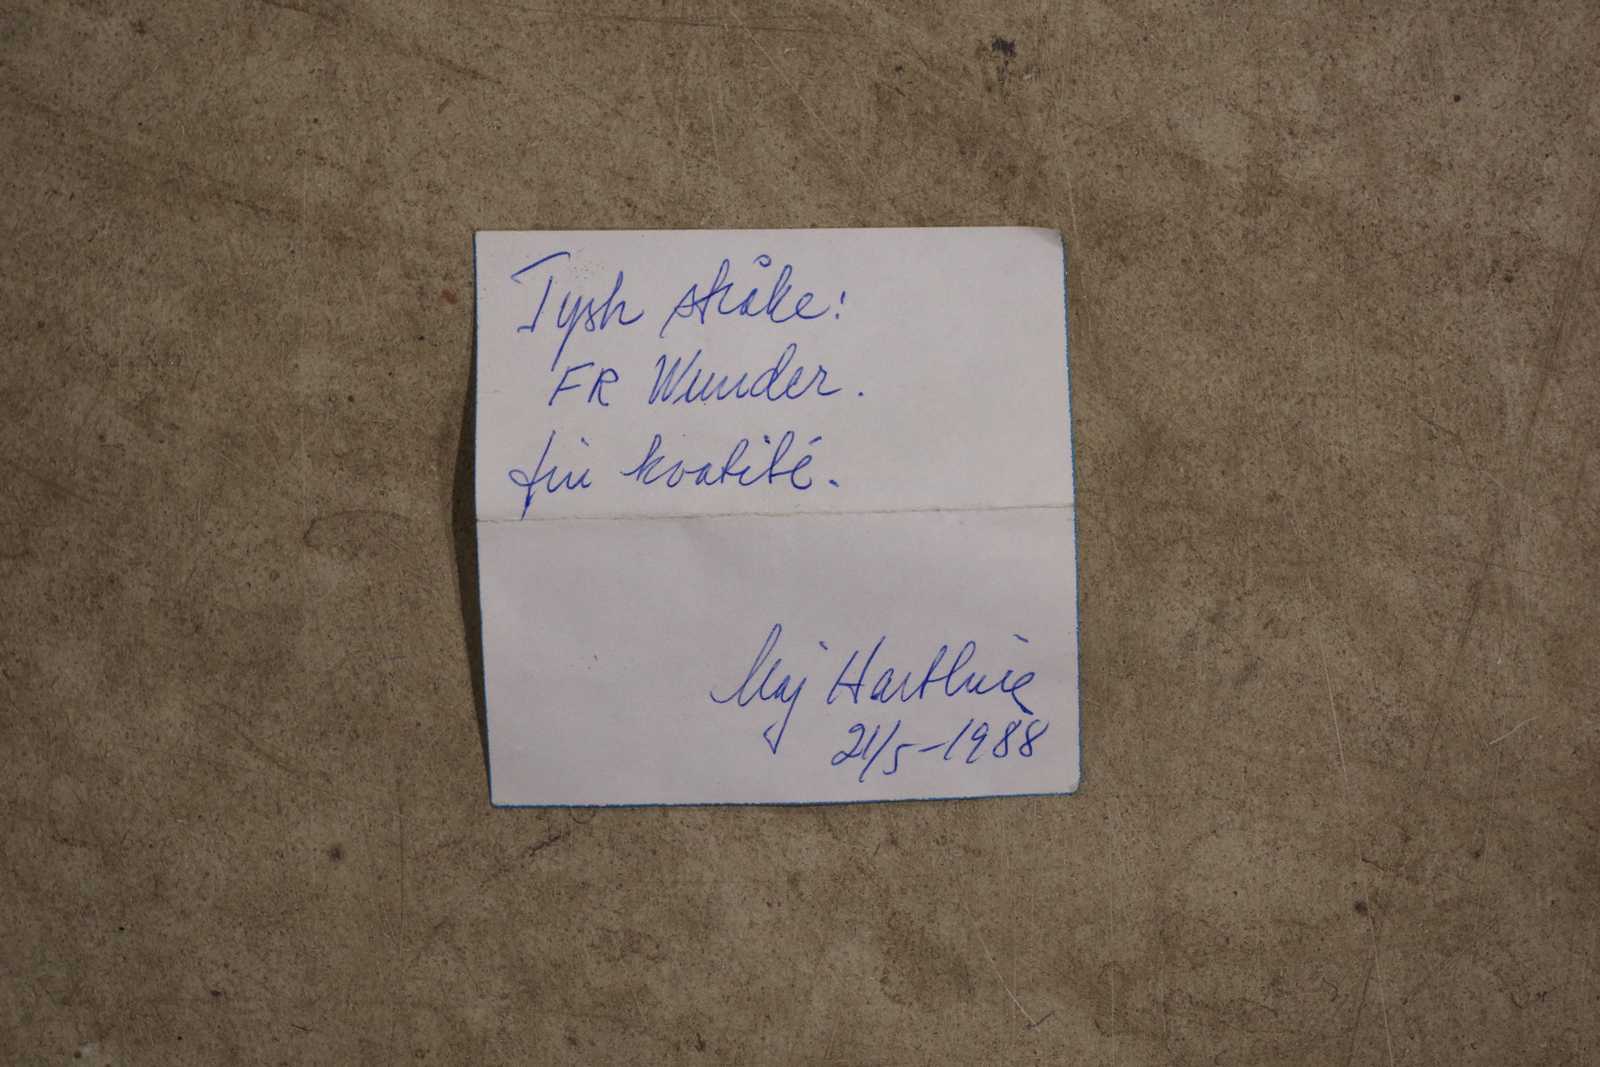 Tysk stråke:
FR Wunder.
fin kvalité.
Maj
21/5-1988